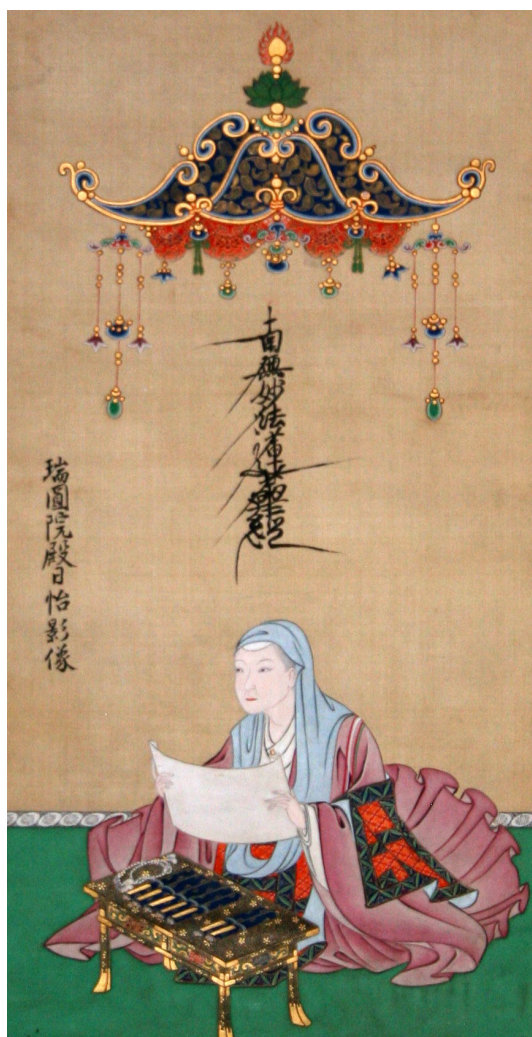 南無妙法蓮華經
瑞圓院殿日怡影像